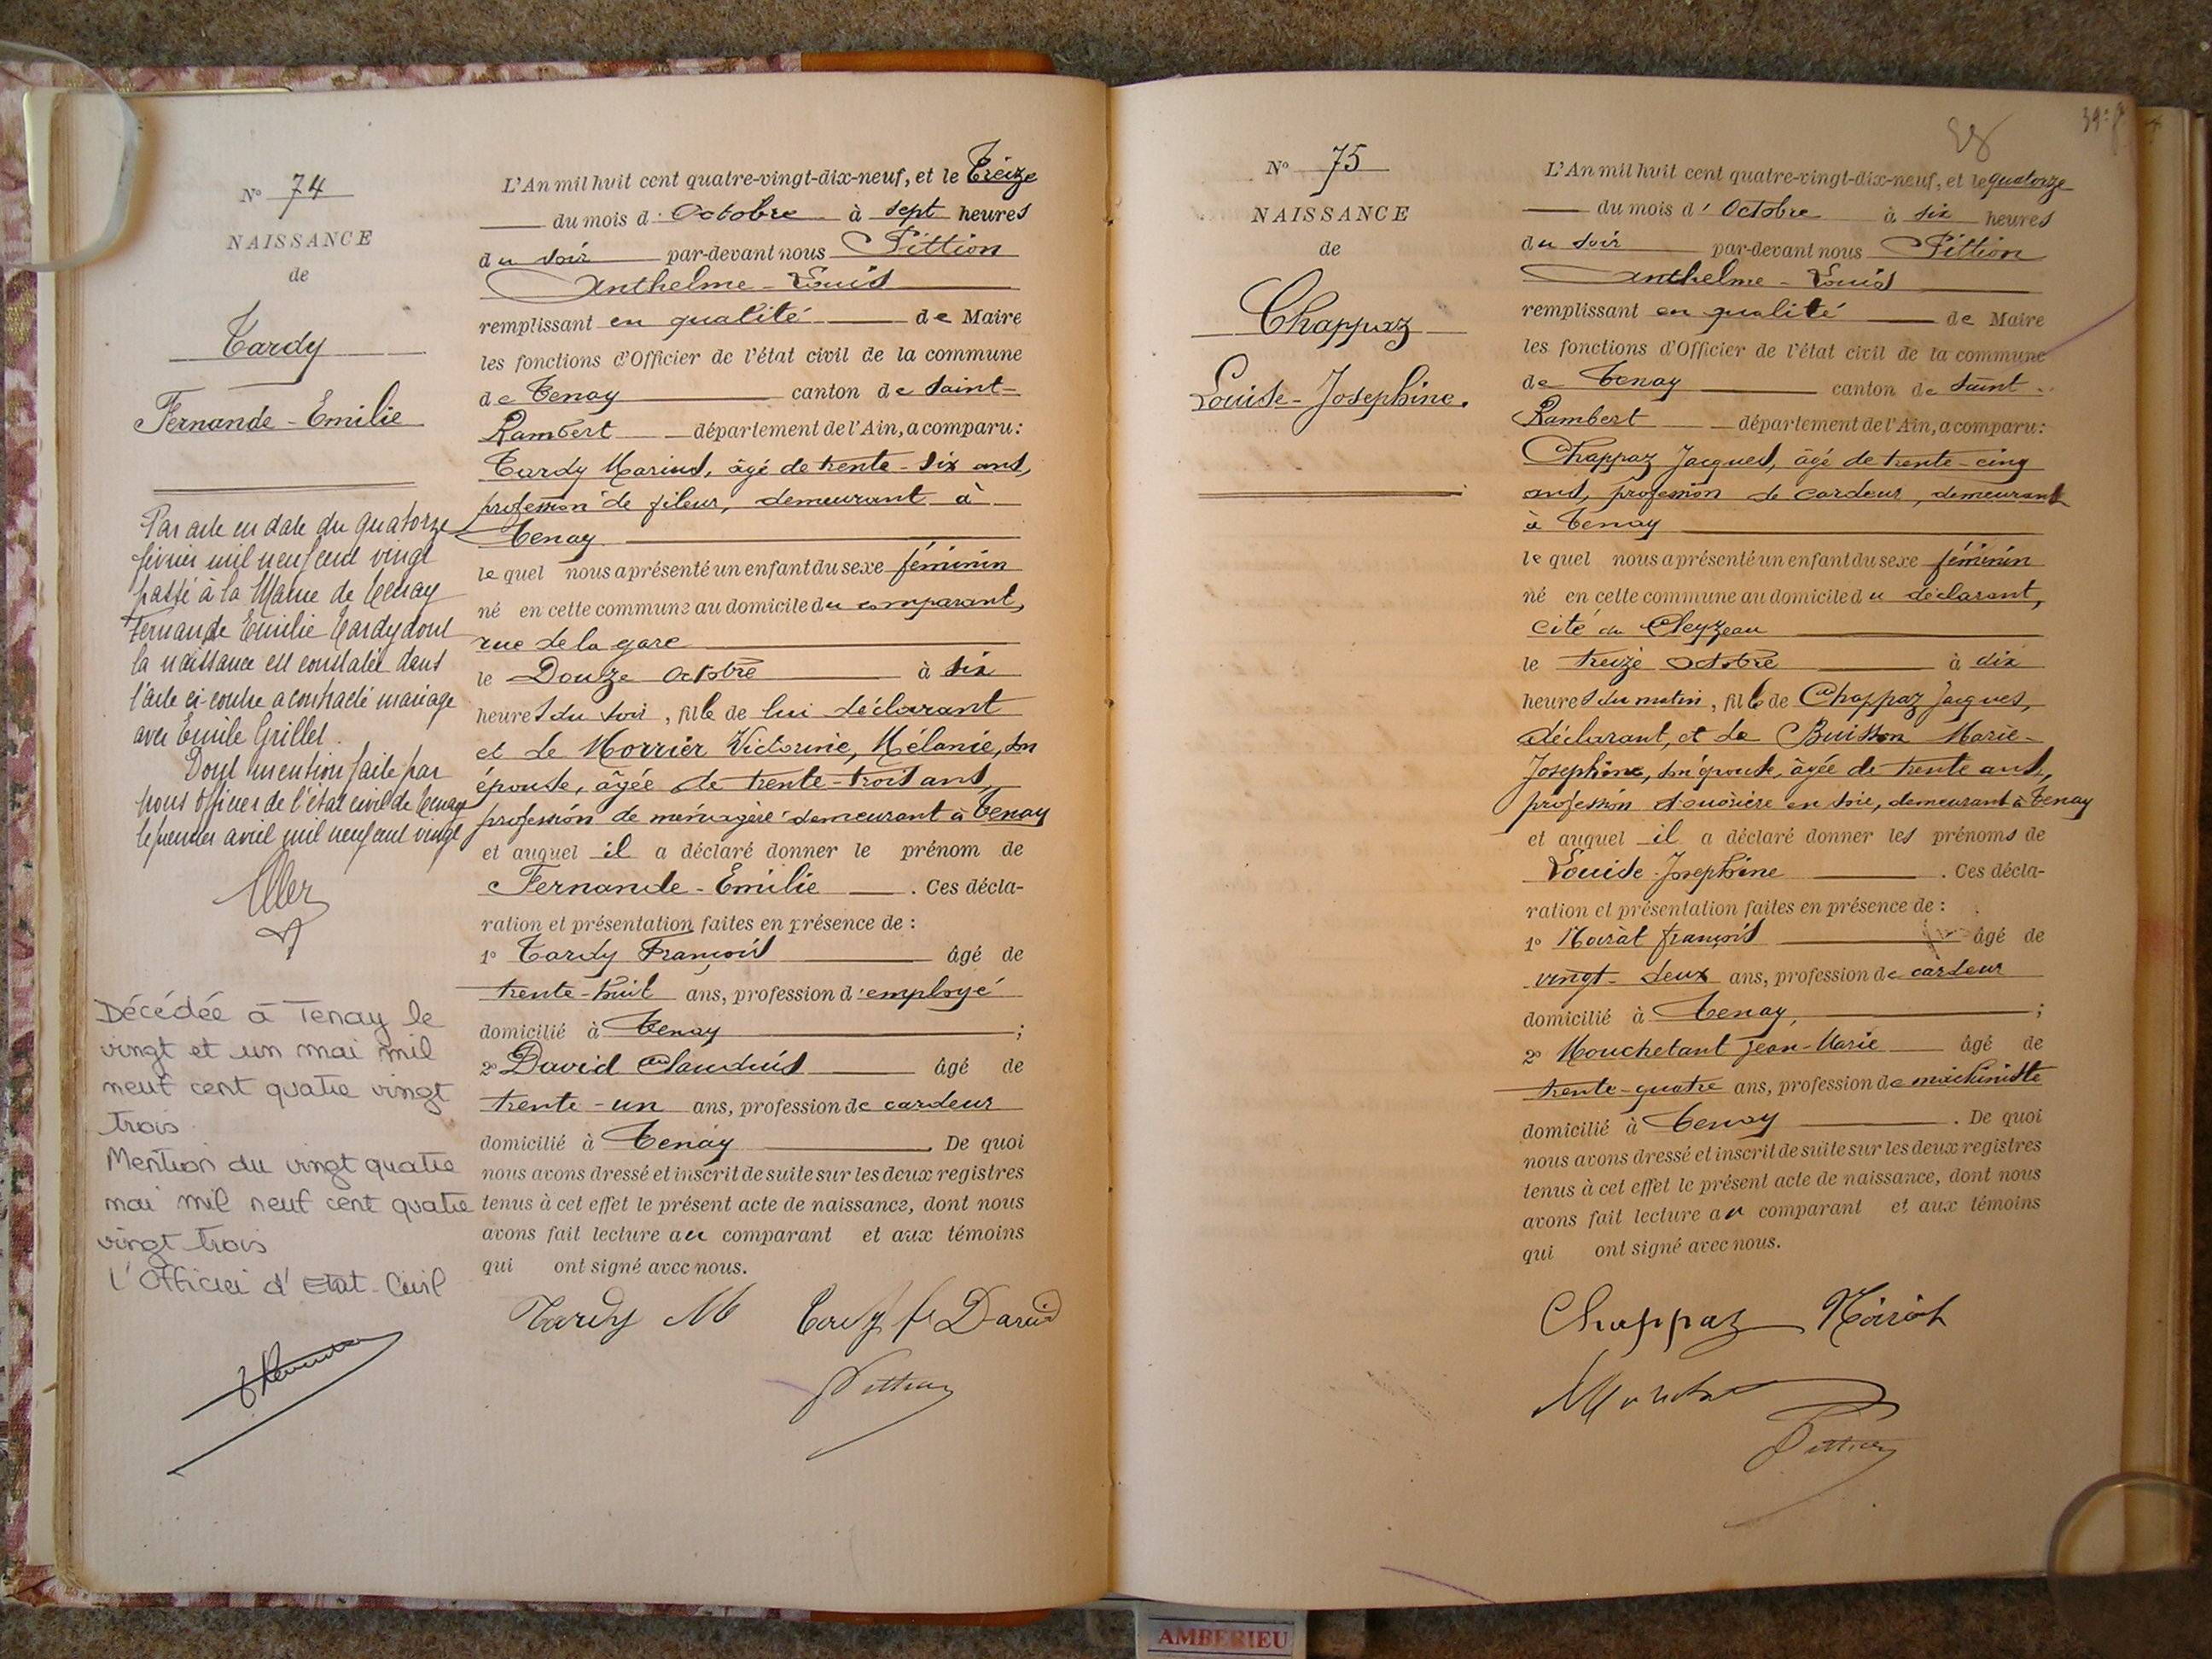 Nº 74
NAISSANCE
de
Tardy
Fernande-Emilie
Par acte en date du quatorze
février mil neuf cent vingt
passé à la Mairie de Tenay
Fernande Emilie Tardy dont
la naissance est constatée dans
l'acte ci-contre a contracté mariage
avec Emile Grillet.
Dont mention faite par
nous Officier de l'état civil de Tenay
le premier avril mil neuf cent vingt
Décédée à Tenay le
vingt et un mai mil
neuf cent quatre vingt
trois.
Mention du vingt quatre
mai mil neuf cent quatre
vingt trois
L'Officier d'Etat-Civil
L'An mil huit cent quatre-vingt-dix-neuf, et le Treize
du mois d'Octobre à sept heures
du soir par-devant nous Pittion
Anthelme-Louis
remplissant en qualité de Maire
les fonctions d'Officier de l'état civil de la commune
de Tenay canton de Saint-
Rambert département de l'Ain, a comparu :
Tardy Marius, âgé de trente-six ans,
profession de fileur, demeurant à
Tenay
lequel nous a présenté un enfant du sexe féminin
né en cette commune au domicile du comparant,
rue de la gare
le Douze Octobre à six
heures du soir, fille de lui déclarant
et de Morrier Victorine, Mélanie, son
épouse, âgée de trente-trois ans,
profession de ménagère demeurant à Tenay
et auquel il a déclaré donner le prénom de
Fernande-Emilie. Ces décla-
ration et présentation faites en présence de :
1º Tardy François âgé de
trente-huit ans, profession d'employé
domicilié à Tenay ;
2º David Claudius âgé de
trente-un ans, profession de cardeur
domicilié à Tenay. De quoi
nous avons dressé et inscrit de suite sur les deux registres
tenus à cet effet le présent acte de naissance, dont nous
avons fait lecture au comparant et aux témoins
qui ont signé avec nous.
Tardy M Tardy fs David
Pittion
38
Nº 75
NAISSANCE
de
Chappaz
Louise-Josephine.
L'An mil huit cent quatre-vingt-dix-neuf, et le quatorze
du mois d'Octobre à six heures
du soir par-devant nous Pittion
Anthelme-Louis
remplissant en qualité de Maire
les fonctions d'Officier de l'état civil de la commune
de Tenay canton de Saint-
Rambert département de l'Ain, a comparu :
Chappaz Jacques, âgé de trente-cinq
ans, profession de cardeur, demeurant
à Tenay
lequel nous a présenté un enfant du sexe féminin
né en cette commune au domicile du déclarant,
cité du Cleyzeau
le treize octobre à dix
heures du matin, fille de Chappaz Jacques,
déclarant, et de Buisson Marie-
Josephine, son épouse, âgée de trente ans,
profession d'ouvrière en soie, demeurant à Tenay
et auquel il a déclaré donner les prénoms de
Louise-Josephine. Ces décla-
ration et présentation faites en présence de :
1º Noirat françois âgé de
vingt-deux ans, profession de cardeur
domicilié à Tenay, ;
2º Mouchetant Jean-Marie âgé de
trente-quatre ans, profession de machiniste
domicilié à Tenay. De quoi
nous avons dressé et inscrit de suite sur les deux registres
tenus à cet effet le présent acte de naissance, dont nous
avons fait lecture au comparant et aux témoins
qui ont signé avec nous.
Chappaz Noirat
Pittion
AMBERIEU